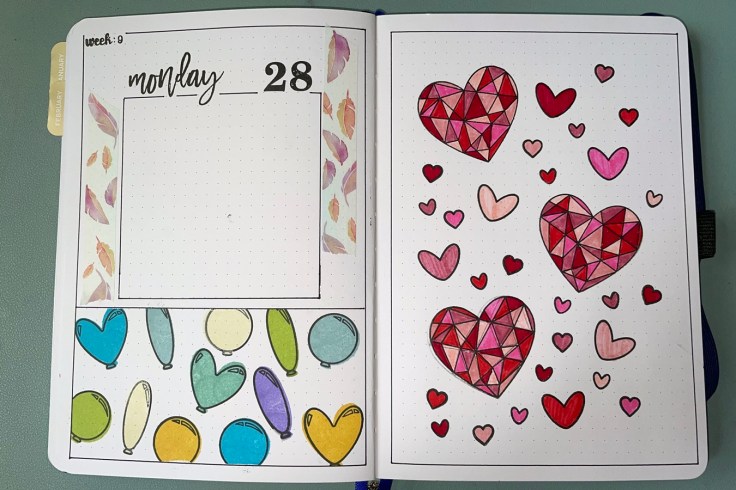 week: 9
monday 28
FEBRUARY
JANUARY